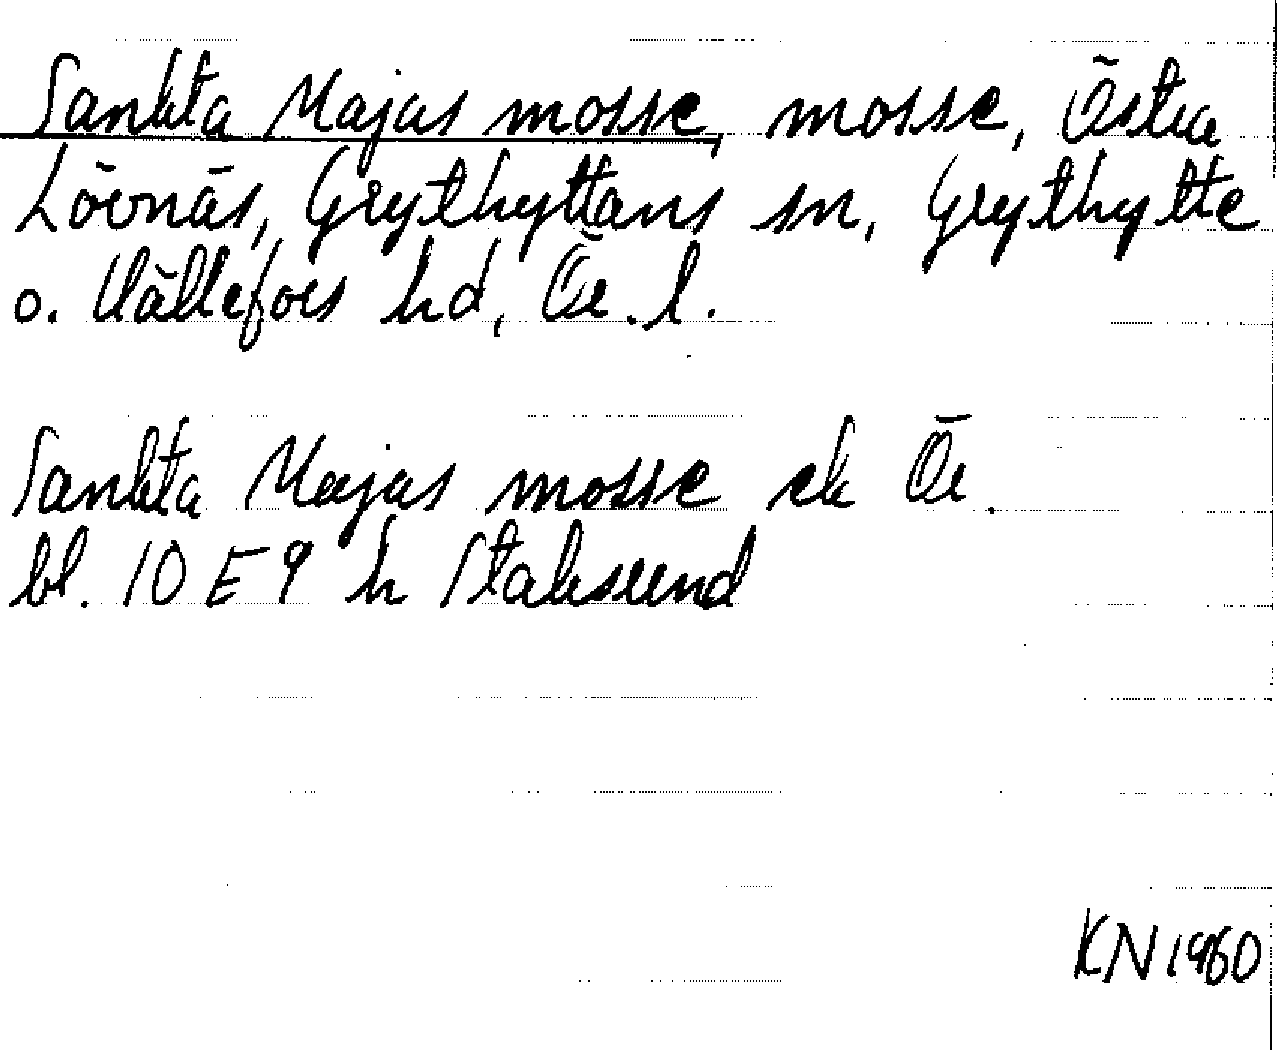 Sankta Majas mosse, mosse, Östra
Lövnäs, Grythyttans sn, Grythytte
o. Hällefors hd, Ör. l.
Sankta Majas mosse ek Ör.
bl. 10 E 9 h Stabsund
KN 1960